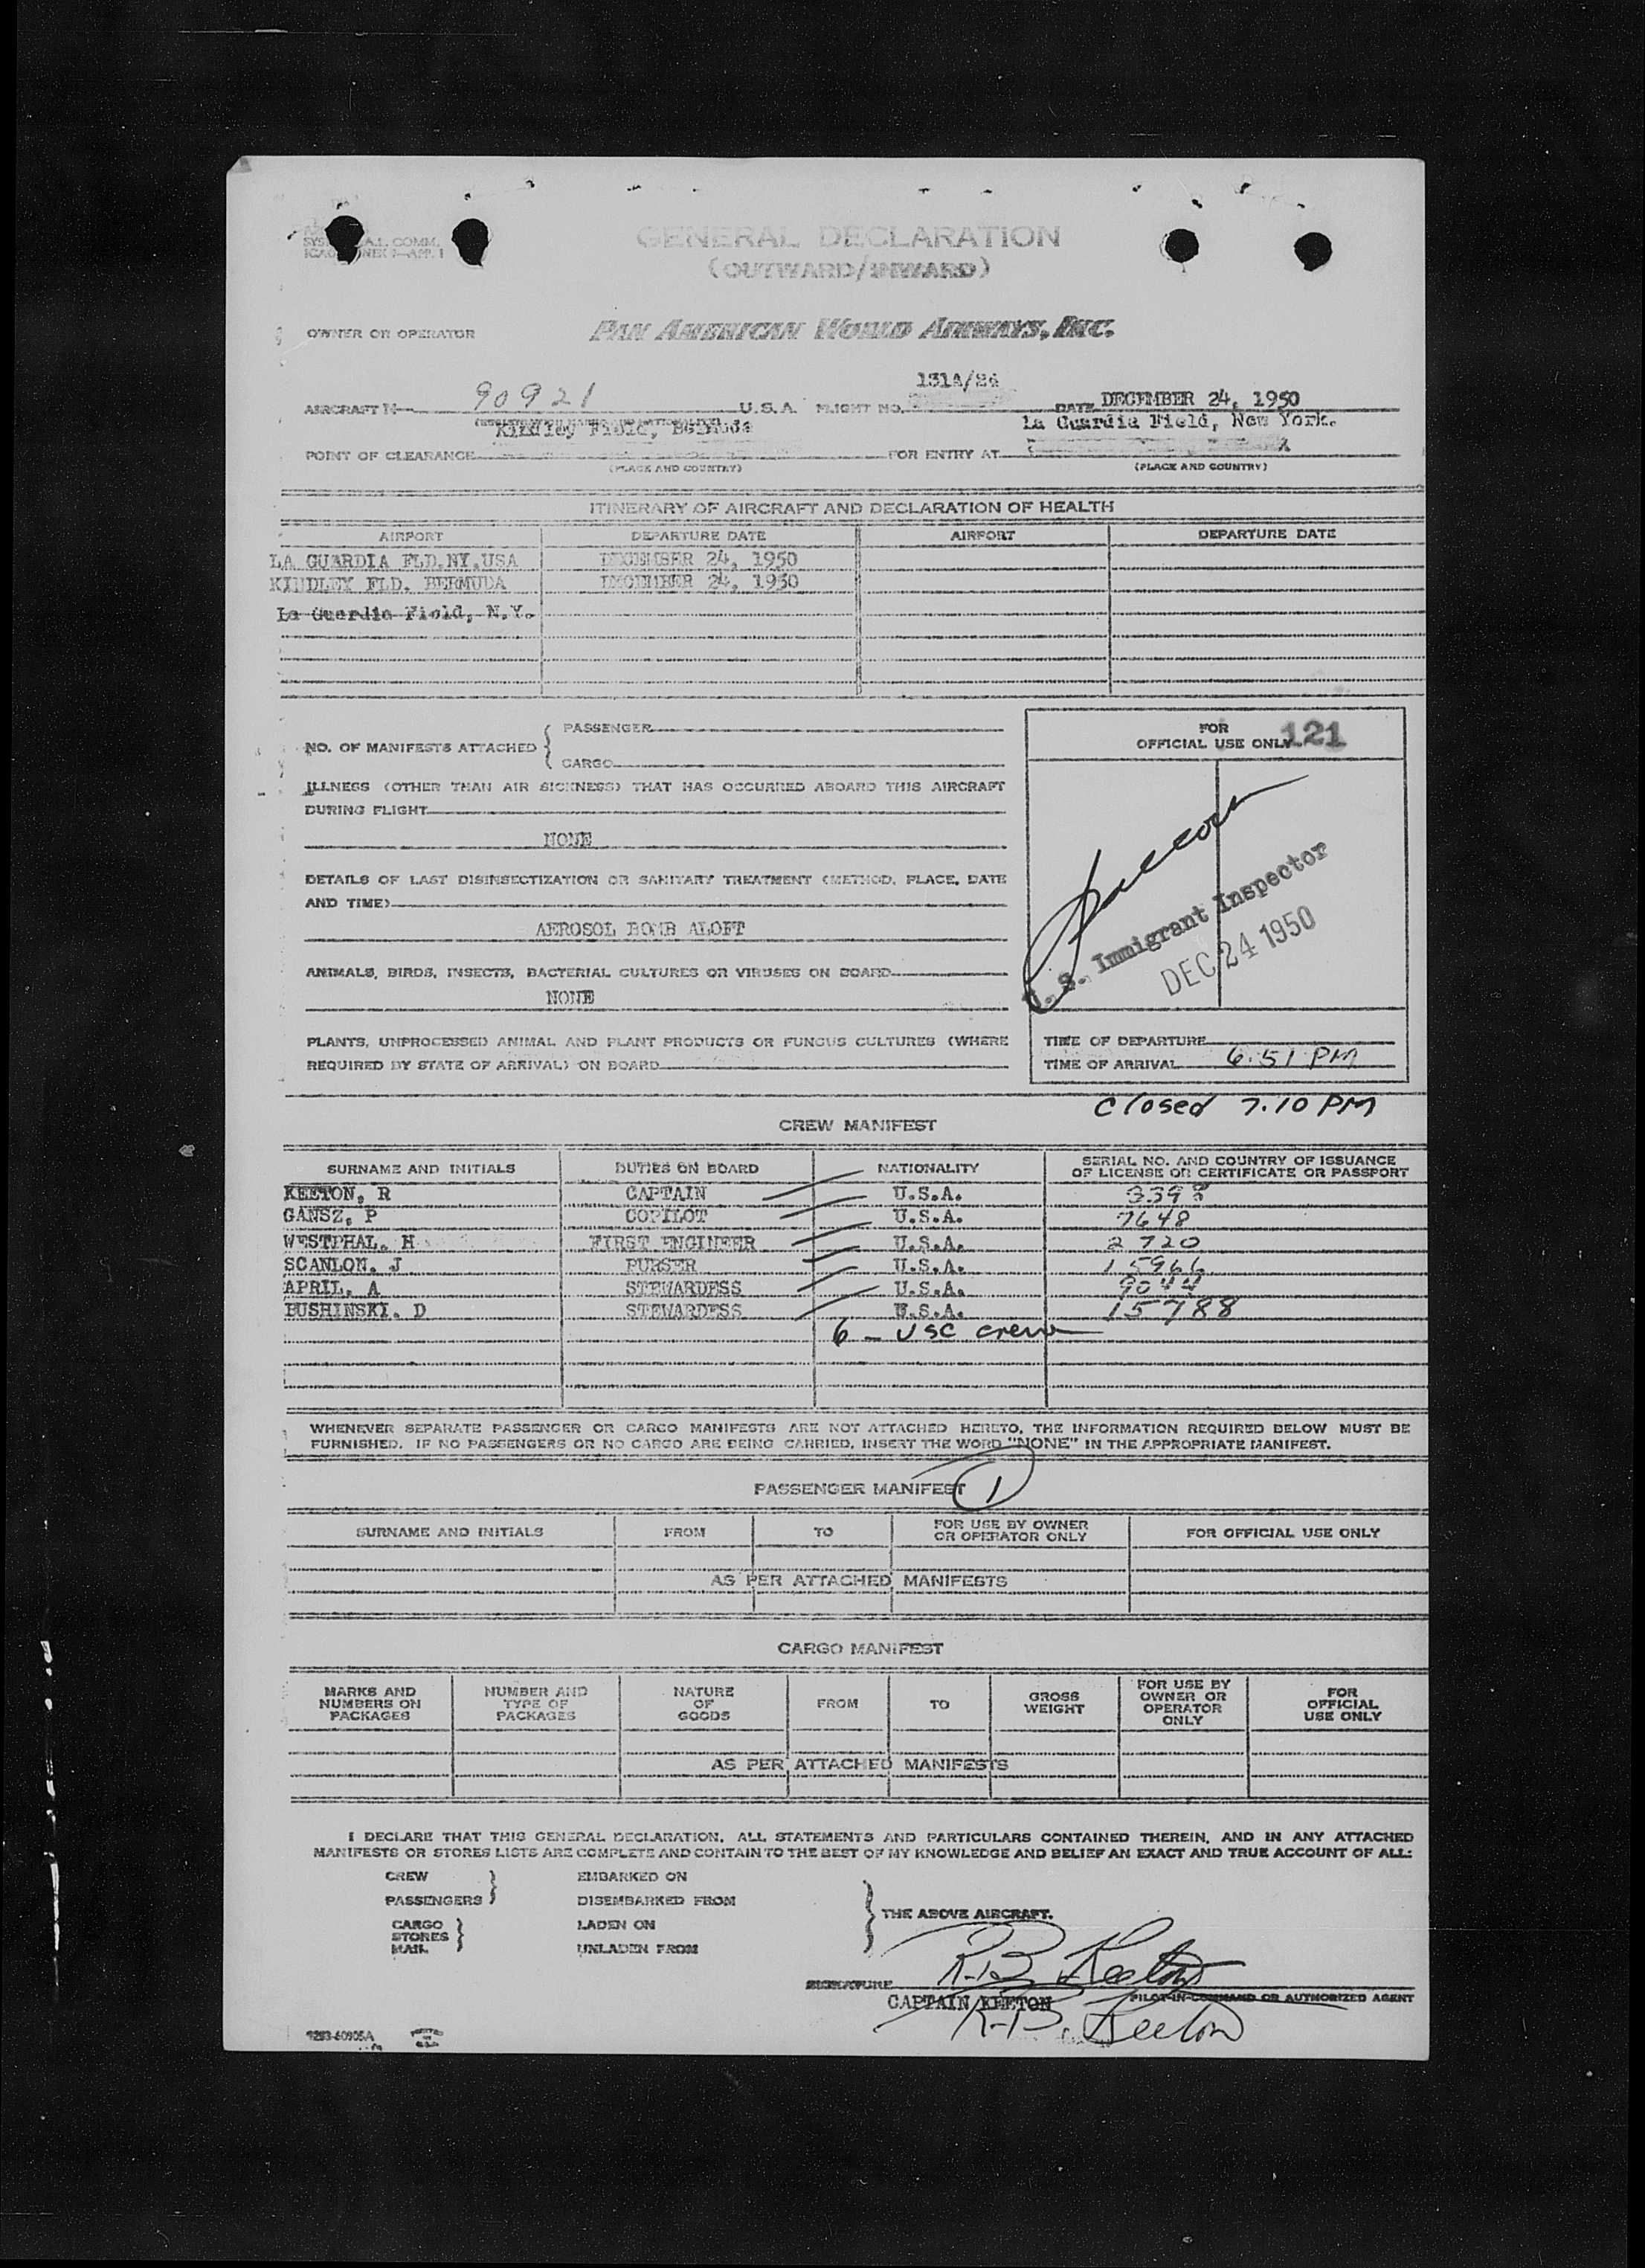 GENERAL DECLARATION
(OUTWARD/INWARD)
OWNER OR OPERATOR PAN AMERICAN WORLD AIRWAYS, INC.
131A/24
AIRCRAFT N 90921 U.S.A. FLIGHT NO. DATE DECEMBER 24, 1950
Kindley Field, Bermuda La Guardia Field, New York.
POINT OF CLEARANCE FOR ENTRY AT
(PLACE AND COUNTRY) (PLACE AND COUNTRY)
ITINERARY OF AIRCRAFT AND DECLARATION OF HEALTH
AIRPORT DEPARTURE DATE AIRPORT DEPARTURE DATE
LA GUARDIA FLD.NY.USA DECEMBER 24, 1950
KINDLEY FLD. BERMUDA DECEMBER 24, 1950
La Guardia Field, N.Y.
NO. OF MANIFESTS ATTACHED { PASSENGER
CARGO
FOR
OFFICIAL USE ONLY 121
ILLNESS (OTHER THAN AIR SICKNESS) THAT HAS OCCURRED ABOARD THIS AIRCRAFT
DURING FLIGHT
NONE
DETAILS OF LAST DISINSECTIZATION OR SANITARY TREATMENT (METHOD, PLACE, DATE
AND TIME)
AEROSOL BOMB ALOFT
U. S. Immigrant Inspector
DEC 24 1950
ANIMALS, BIRDS, INSECTS, BACTERIAL CULTURES OR VIRUSES ON BOARD
NONE
PLANTS, UNPROCESSED ANIMAL AND PLANT PRODUCTS OR FUNGUS CULTURES (WHERE
REQUIRED BY STATE OF ARRIVAL) ON BOARD
TIME OF DEPARTURE
TIME OF ARRIVAL 6.51 PM
Closed 7.10 PM
CREW MANIFEST
SURNAME AND INITIALS DUTIES ON BOARD NATIONALITY SERIAL NO. AND COUNTRY OF ISSUANCE
OF LICENSE OR CERTIFICATE OR PASSPORT
KEETON, R CAPTAIN U.S.A. 3398
GANSZ, P COPILOT U.S.A. 7648
WESTPHAL. H FIRST ENGINEER U.S.A. 2720
SCANLON. J PURSER U.S.A. 15966
APRIL. A STEWARDESS U.S.A. 9044
BUSHINSKI. D STEWARDESS U.S.A. 15788
6 - USC crew
WHENEVER SEPARATE PASSENGER OR CARGO MANIFESTS ARE NOT ATTACHED HERETO, THE INFORMATION REQUIRED BELOW MUST BE
FURNISHED. IF NO PASSENGERS OR NO CARGO ARE BEING CARRIED, INSERT THE WORD "NONE" IN THE APPROPRIATE MANIFEST.
PASSENGER MANIFEST 1
SURNAME AND INITIALS FROM TO FOR USE BY OWNER
OR OPERATOR ONLY FOR OFFICIAL USE ONLY
AS PER ATTACHED MANIFESTS
CARGO MANIFEST
MARKS AND
NUMBERS ON
PACKAGES NUMBER AND
TYPE OF
PACKAGES NATURE
OF
GOODS FROM TO GROSS
WEIGHT FOR USE BY
OWNER OR
OPERATOR
ONLY FOR
OFFICIAL
USE ONLY
AS PER ATTACHED MANIFESTS
I DECLARE THAT THIS GENERAL DECLARATION, ALL STATEMENTS AND PARTICULARS CONTAINED THEREIN, AND IN ANY ATTACHED
MANIFESTS OR STORES LISTS ARE COMPLETE AND CONTAIN TO THE BEST OF MY KNOWLEDGE AND BELIEF AN EXACT AND TRUE ACCOUNT OF ALL:
CREW EMBARKED ON
PASSENGERS } DISEMBARKED FROM
THE ABOVE AIRCRAFT.
CARGO LADEN ON
STORES }
MAIL UNLADEN FROM
SIGNATURE R.B. Keeton
CAPTAIN KEETON PILOT-IN-COMMAND OR AUTHORIZED AGENT
R.B. Keeton